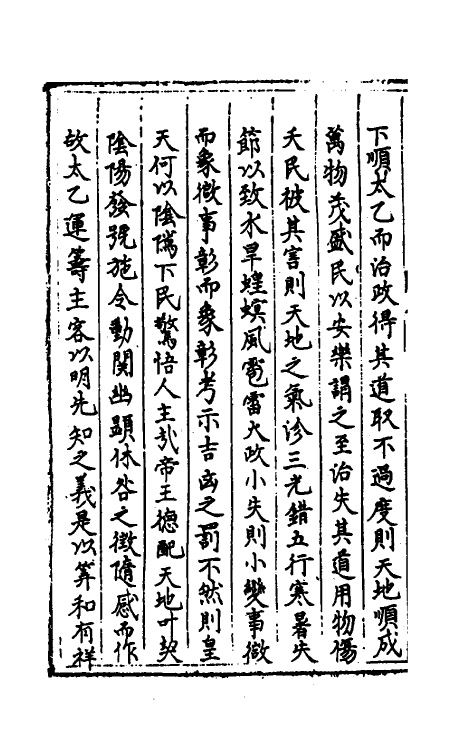 下順太乙而治政得其道取不過度則天地順成
萬物茂盛民以安樂謂之至治失其道用物傷
夭民被其害則天地之氣沴三光錯五行寒暑失
節以致水旱蝗螟風雹雷火政小失則小變事微
而象微事彰而象彰考示吉凶之罰不然則皇
天何以陰隲下民驚悟人主哉帝王德配天地叶契
陰陽發號施令動關幽顯休咎之徵隨感而作
故太乙運籌主客以明先知之義是以筭和有祥